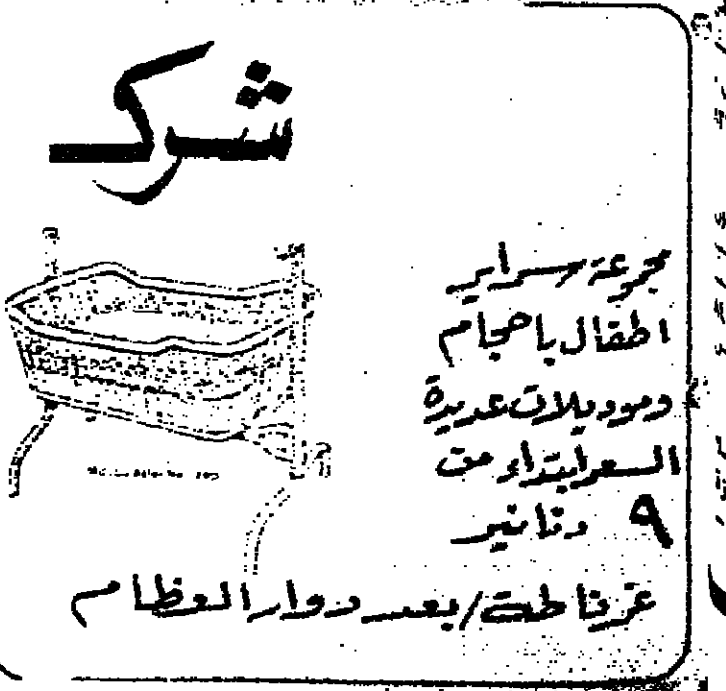 شرك
مجموعة سراير
اطفال باحجام
وموديلات عديدة
السعر ابتداء من
٩ دنانير
عرفات / بعد دوار العظام